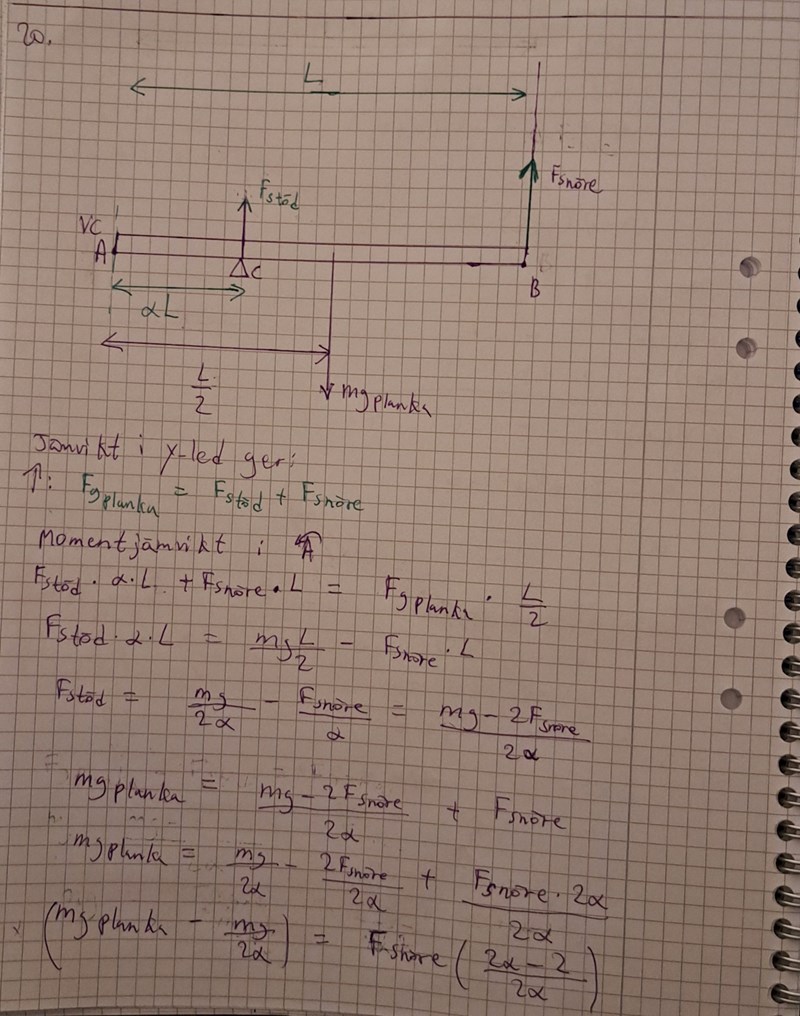 20.
L
Fsnöre
Fstöd
VC
A
C
B
αL
L/2
mgplanka
Jämvikt i y-led ger:
↑: Fgplanka = Fstöd + Fsnöre
Momentjämvikt i A
Fstöd · α · L + Fsnöre · L = Fgplanka · L/2
Fstöd · α · L = mgL/2 - Fsnöre · L
Fstöd = mg/2α - Fsnöre/α = mg - 2Fsnöre/2α
mgplanka = mg - 2Fsnöre/2α + Fsnöre
mgplanka = mg/2α - 2Fsnöre/2α + Fsnöre · 2α/2α
(mgplanka - mg/2α) = Fsnöre (2α - 2/2α)